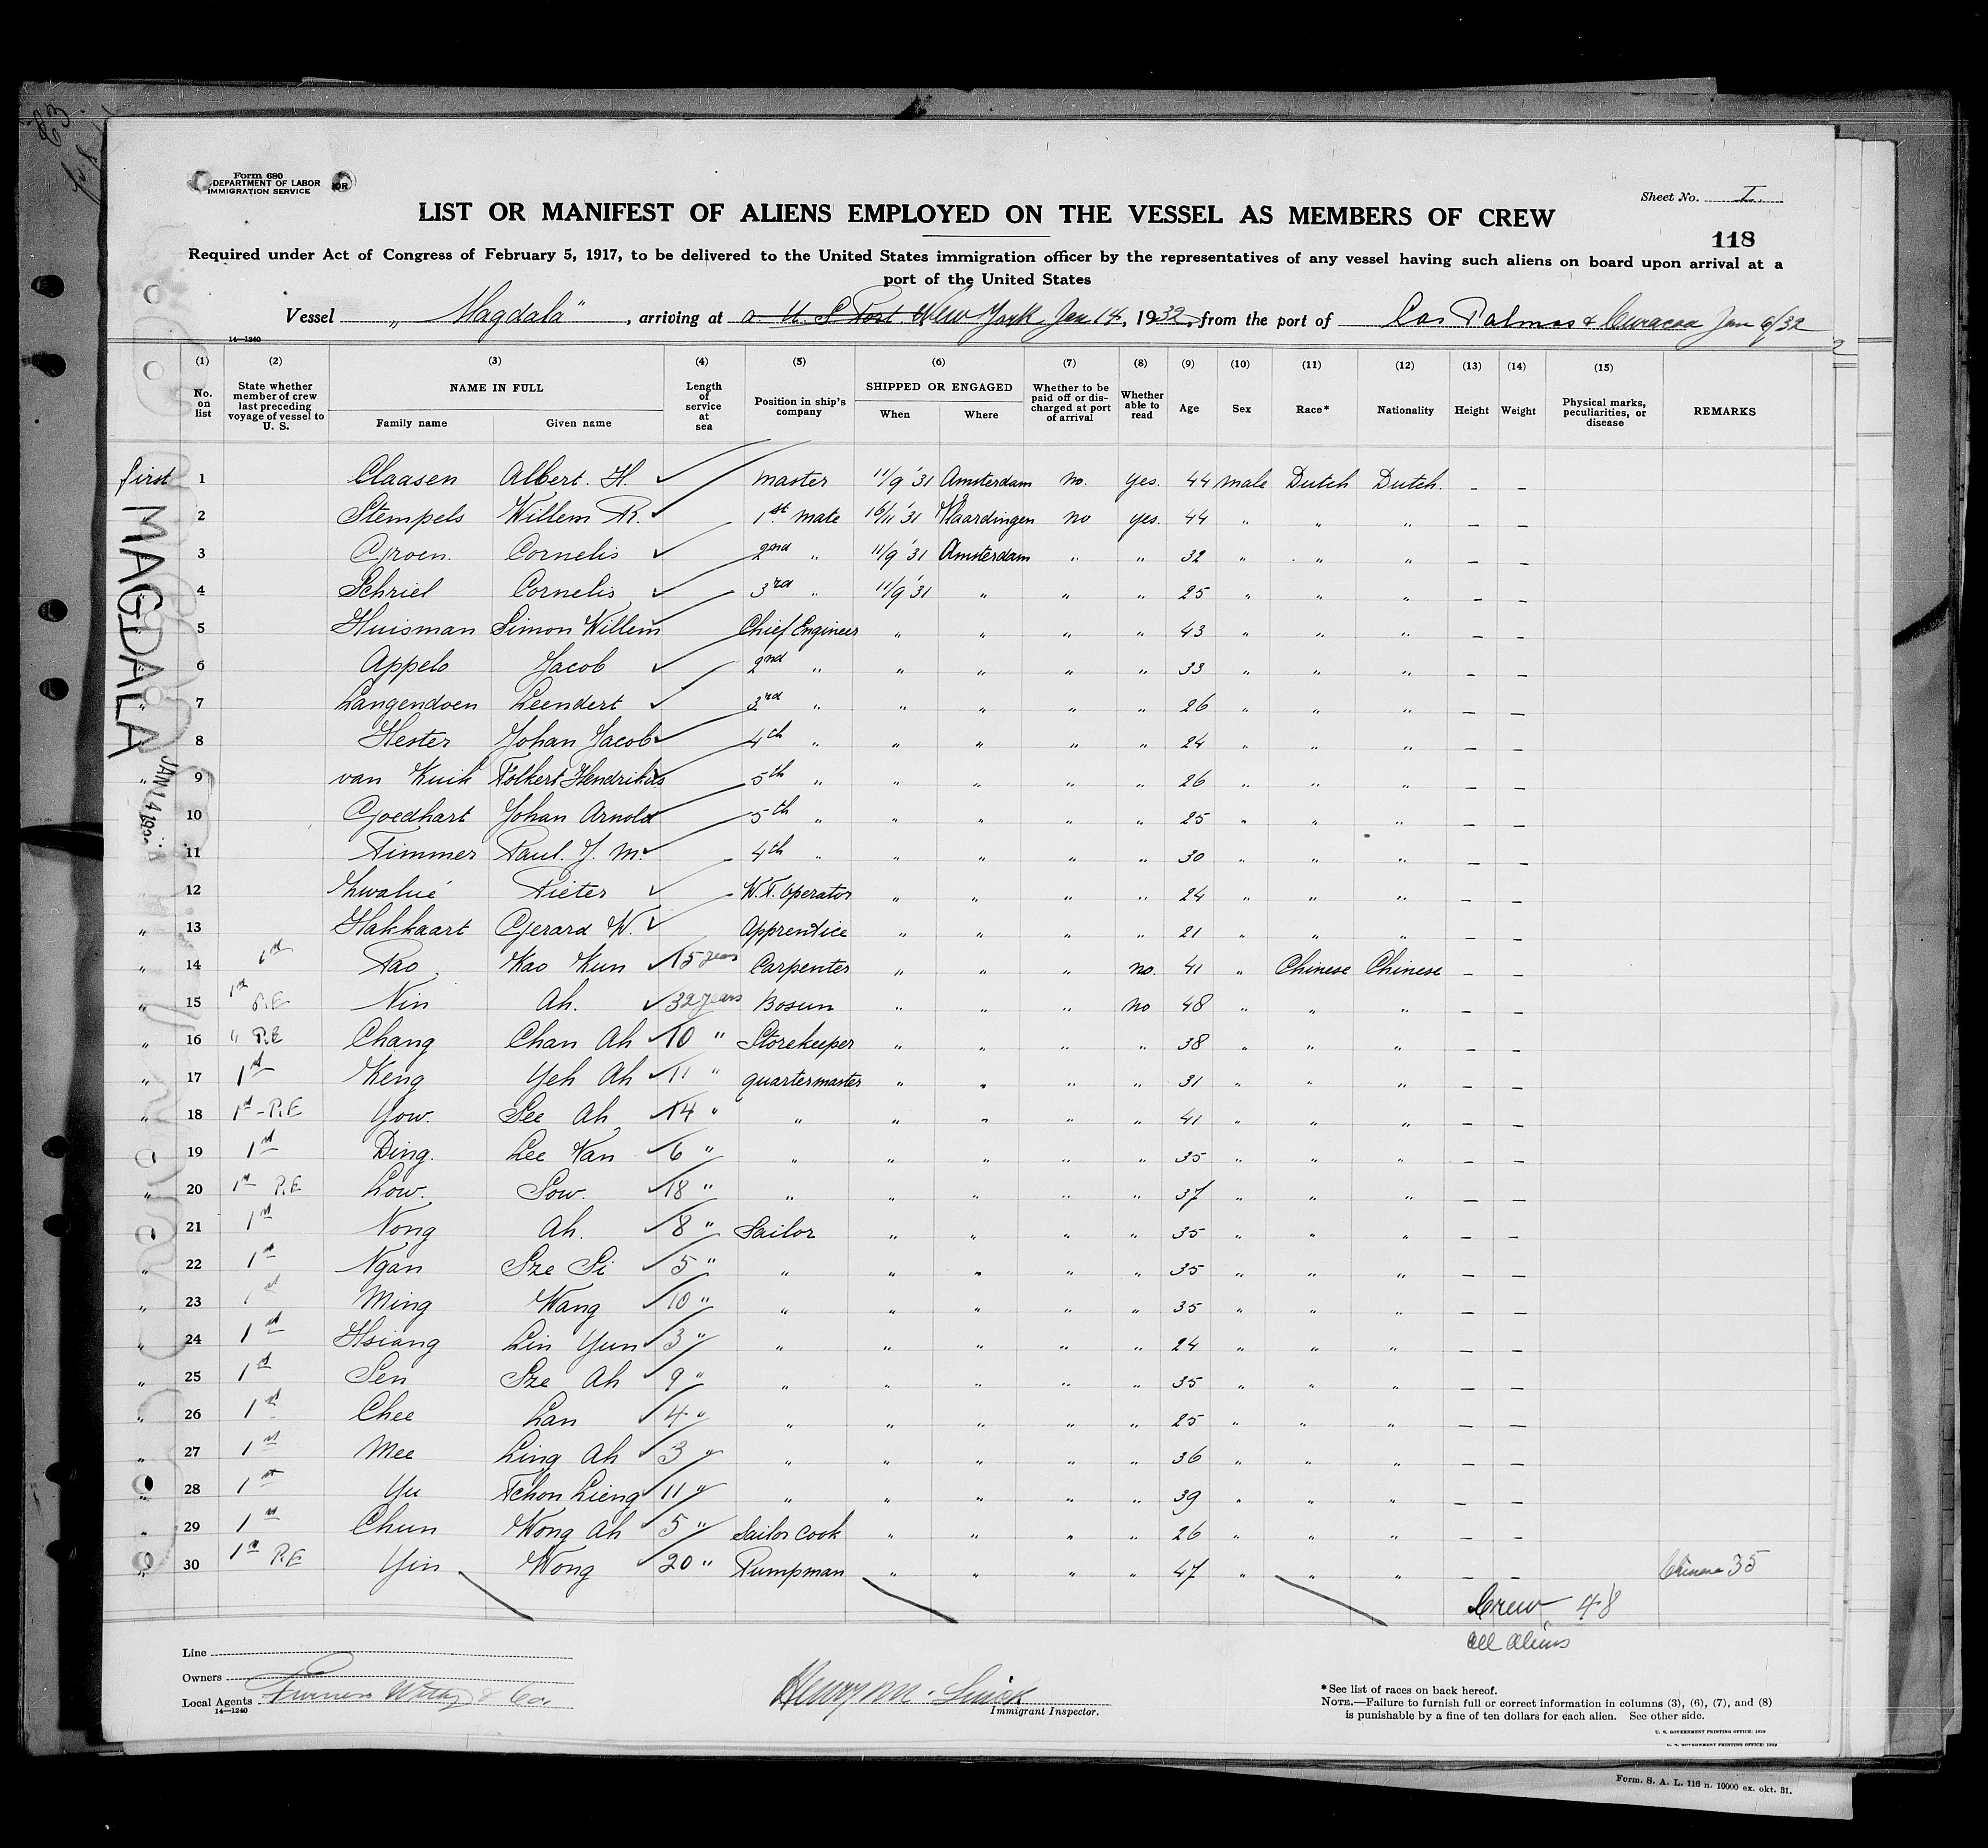 Form 680
DEPARTMENT OF LABOR
IMMIGRATION SERVICE
Sheet No. I.
LIST OR MANIFEST OF ALIENS EMPLOYED ON THE VESSEL AS MEMBERS OF CREW
118
Required under Act of Congress of February 5, 1917, to be delivered to the United States immigration officer by the representatives of any vessel having such aliens on board upon arrival at a
port of the United States
Vessel „ Magdala", arriving at a U. S. Port. New York Jan 14, 1932, from the port of Las Palmas & Curacao Jan 6/32
14—1240
(1) (2) (3) (4) (5) (6) (7) (8) (9) (10) (11) (12) (13) (14) (15)
No. on list State whether member of crew last preceding voyage of vessel to U. S. NAME IN FULL Family name Given name Length of service at sea Position in ship's company SHIPPED OR ENGAGED When Where Whether to be paid off or discharged at port of arrival Whether able to read Age Sex Race* Nationality Height Weight Physical marks, peculiarities, or disease REMARKS
first 1 Claasen Albert. H. master 11/9 '31 Amsterdam no. yes. 44 male Dutch Dutch. – –
2 Stempels Willem R. 1st. mate 16/11 '31 Vlaardingen no yes. 44 „ „ „ – –
3 Groen. Cornelis 2nd „ 11/9 '31 Amsterdam „ „ 32 „ „ „ – –
4 Schriel Cornelis 3rd „ 11/9 '31 „ „ „ 25 „ „ „ – –
5 Huisman Simon Willem Chief Engineer „ „ „ „ 43 „ „ „ – –
6 Appelo Jacob 2nd „ „ „ „ „ 33 „ „ „ – –
7 Langendoen Leendert 3rd „ „ „ „ „ 26 „ „ „ – –
8 Hester Johan Jacob 4th „ „ „ „ „ 24 „ „ „ – –
„ 9 van Kuik Folkert Hendrikus 5th „ „ „ „ „ 26 „ „ „ – –
10 Goedhart Johan Arnold 5th „ „ „ „ „ 25 „ „ „ – –
11 Timmer Paul. J. M. 4th „ „ „ „ „ 30 „ „ „ – –
12 Zwalué Pieter W.T. operator „ „ „ „ 24 „ „ „ – –
„ 13 Hakkaart Gerard W. Apprentice „ „ „ „ 21 „ „ „ – –
„ 14 1st Pao Kao Kun 15 years Carpenter „ „ „ no. 41 „ Chinese Chinese – –
„ 15 1st P.E Nin Ah. 32 years Bosun „ „ „ no 48 „ „ „ – –
„ 16 „ P.E Chang Chan Ah 10 " Storekeeper „ „ „ „ 38 „ „ „ – –
„ 17 1st Keng Yeh Ah 11 " quartermaster „ „ „ „ 31 „ „ „ – –
„ 18 1st - P.E Yow. See Ah 14 " „ „ „ „ „ 41 „ „ „ – –
„ 19 1st Ding. Lee Van 6 " „ „ „ „ „ 35 „ „ „ – –
„ 20 1st P.E Low. Sow. 18 " „ „ „ „ „ 37 „ „ „ – –
„ 21 1st Nong Ah. 8 " Sailor „ „ „ „ 35 „ „ „ – –
„ 22 1st Ngan Sze Si 5 " „ „ „ „ „ 35 „ „ „ – –
„ 23 1st Ming Wang 10 " „ „ „ „ „ 35 „ „ „ – –
„ 24 1st Hsiang Lin Yun 3 " „ „ „ „ „ 24 „ „ „ – –
„ 25 1st Sen Sze Ah 9 " „ „ „ „ „ 35 „ „ „ – –
„ 26 1st Chee Lan 4 " „ „ „ „ „ 25 „ „ „ – –
„ 27 1st Mee Ling Ah 3 " „ „ „ „ „ 36 „ „ „ – –
„ 28 1st Yu Tchon Lieng 11 " „ „ „ „ „ 39 „ „ „ – –
„ 29 1st Chun Wong Ah 5 " Sailor cook „ „ „ „ 26 „ „ „ – –
„ 30 1st P.E Yin Wong 20 " Pumpman „ „ „ „ 47 „ „ „ – – Chinese 35
MAGDALA
JAN 14 1932
Crew 48
all aliens
Line
Owners
Local Agents Furness Withy & Co.
14—1240
Henry M.
Immigrant Inspector.
*See list of races on back hereof.
NOTE.—Failure to furnish full or correct information in columns (3), (6), (7), and (8)
is punishable by a fine of ten dollars for each alien. See other side.
U. S. GOVERNMENT PRINTING OFFICE: 1929
U. S. GOVERNMENT PRINTING OFFICE: 1929
Form. S. A. L. 116 n. 10000 ex. okt. 31.